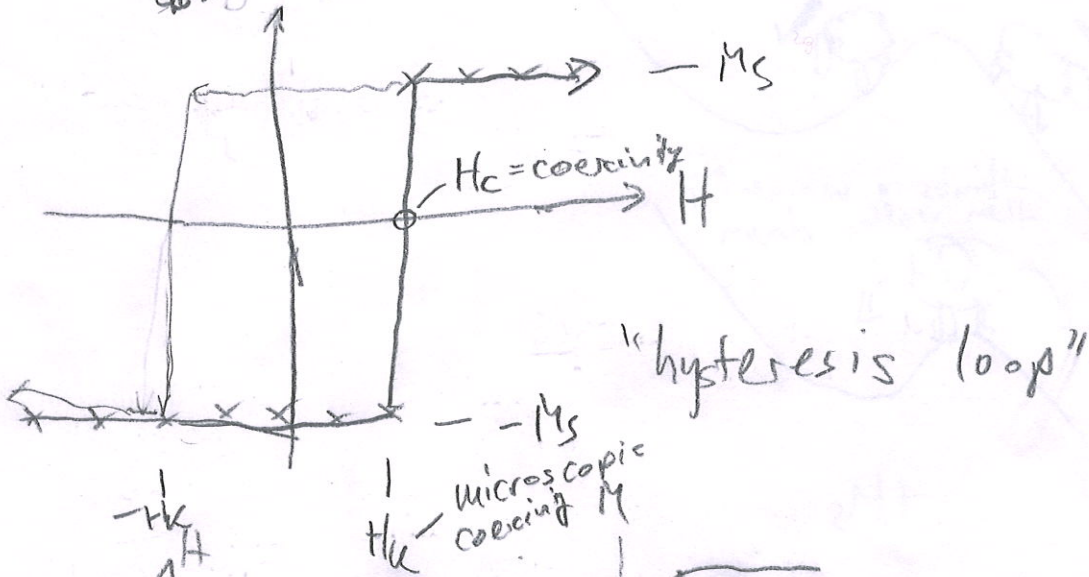 — Ms
Hc = coercivity
H
"hysteresis loop"
— -Ms
-Hk
Hk
microscopic
coercivity M
H